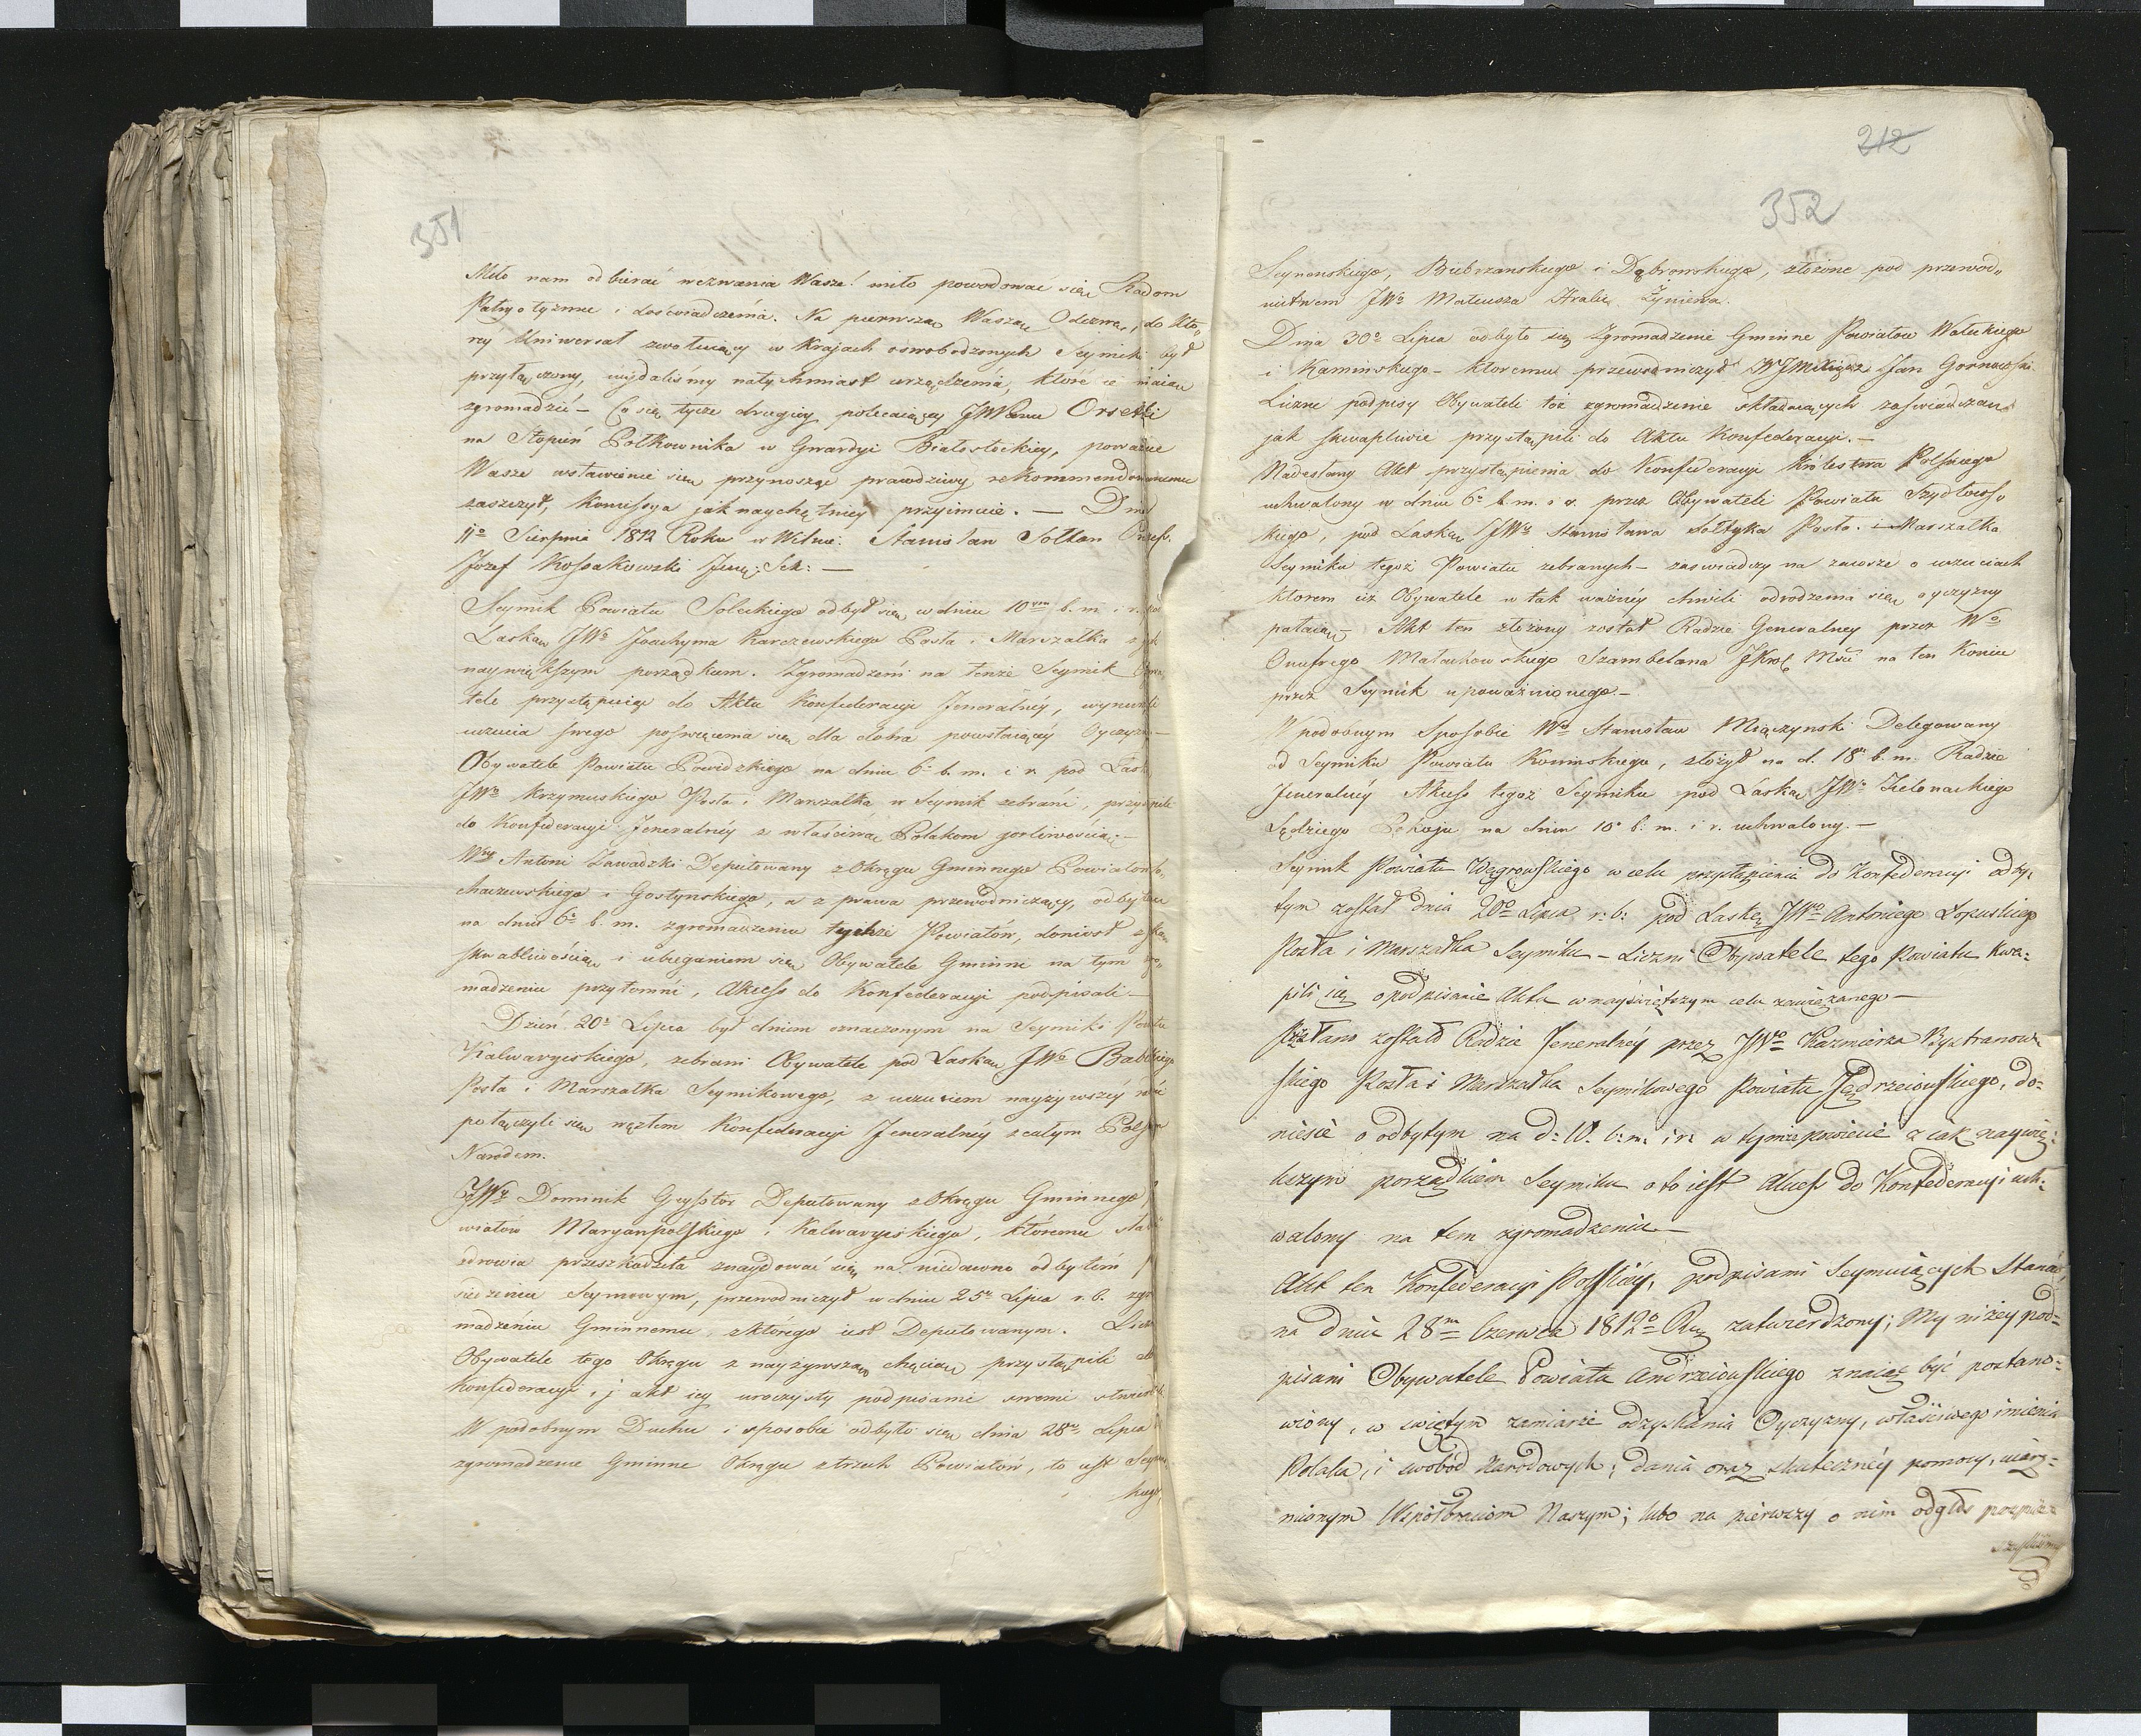 351
Miło nam odbierać wezwania Wasze! miło powodować się Radom
Patryotyzmu i doświadczenia. Na pierwszą Waszą Odezwę, do któ„
réy Uniwersał zwołuiący w krajach oswobodzonych Seymiki był
przyłączony, wydaliśmy natychmiast urządzenia, które ie maią
zgromadzić – Co się tycze drugiey, polecaiącey JWPana Orsetti
na Stopień Półkownika w Gwardyi Białostockiey, poważne
Wasze wstawienie się przynosząc prawdziwy rekommendowanemu
zaszczyt, Komissya jak naychętniey przyimuie. — Dnia
11o Sierpnia 1812 Roku w Wilnie. Stanisław Sołtan Prezes.
Jozef Kossakowski Jener: Sek: —
Seymik Powiatu Soleckiego odbył się w dniu 10m b. m. i r. pod
Laską JWo Joachyma Karczewskiego Posła i Marszałka z jak
naywiększym porządkiem. Zgromadzeni na tenże Seymik Obywa„
tele przystępuiąc do Aktu Konfederacyi Jeneralnéy, wynurzyli
uczucia swego poświęcenia się dla dobra powstaiącéy Oyczyzny —
Obywatele Powiatu Powidzkiego na dniu 6o b. m. i r. pod Laską
JWo Krzymuskiego Posła i Marszałka w Seymik zebrani, przystąpili
do Konfederacyi Jeneralnéy z właściwą Polakom gorliwością. —
Wny Antoni Zawadzki Deputowany z Okręgu Gminnego Powiatow So„
chaczewskiego i Gostynskiego, a z prawa przewodniczący, odbytemu
na dniu 6o b. m. zgromadzeniu tychże Powiatów, doniosł z jaką
skwabliwością i ubieganiem się Obywatele Gminni na tym zgro„
madzeniu przytomni, Akcess do Konfederacyi podpisali. —
Dzień 20o Lipca był dniem oznaczonym na Seymiki Powiatu
Kalwaryiskiego, zebrani Obywatele pod Laską JWo
Posła i Marszałka Seymikowego, z uczuciem nayżywszéy
połączyli się węzłem Konfederacyi Jeneralnéy z całym Polskim
Narodem.
JWy Dominik Deputowany z Okręgu Gminnego Po
wiatów Maryanpolskiego i Kalwaryiskiego, któremu
zdrowia przeszkadzała znaydować się na niedawno odbytém
siedzeniu Seymowym, przewodniczył w dniu 25o Lipca r. b. zgro
madzeniu Gminnemu z którego iest Deputowanym. Liczni
Obywatele tego Okręgu z nayżywszą chęcią przystąpili do
Konfederacyi i j akt iey uroczysty podpisami swemi
W podobnym Duchu i sposobie odbyło się dnia 28o Lipca
zgromadzenie Gminne Okręgu z trzech Powiatów, to iest Seyneń
skiego
212
352
Seynenskiego, Biebrzanskiego i Dąbrowskiego, złożone pod przewod„
nictwem JWo Mateusza Hrabi Żyniewa.
Dnia 30o Lipca odbyło się Zgromadzenie Gminne Powiatow Wałeckiego
i Kaminskiego – ktoremu przewodniczył WJMci Xiądz Jan Gornowski.
Liczne podpisy Obywateli toż zgromadzenie składaiących zaświadczaią
jak skwapliwie przystąpili do Aktu Konfederacyi. —
Nadesłany Akt przystąpienia do Konfederacyi Królestwa Polskiego
uchwalony w dniu 6o b. m. i r. przez Obywateli Powiatu Szydłows„
kiego, pod Laską JWo Stanisława Sołtyka Posła i Marszałka
Seymiku tegoż Powiatu zebranych – zaświadczy na zawsze o uczuciach
ktorem iż Obywatele w tak ważnéy chwili odrodzenia się oyczyzny
pałaią. Akt ten złożony został Radzie Generalney przez Wo
Onufrego Małachowskiego Szambelana JKról Mści na ten Koniec
przez Seymik upoważnionego. —
W podobnym Sposobie Wny Stanisław Miączynski Delegowany
od Seymiku Powiatu Koninskiego, złożył na d. 18 b. m. Radzie
Jeneralnéy Akcess tegoż Seymiku pod Laską JWo Zielonackiego
Sędziego Pokoju na dniu 10o b. m. i r. uchwalony. —
Seymik Powiatu Wągrowskiego w celu przystąpienia do Konfederacyi odby„
tym został dnia 20o Lipca r: b: pod Laską JWo Antoniego Łopuskiego
Posła i Marszałka Seymiku – Liczni Obywatele tego Powiatu kwa=
pili się o podpisanie Aktu w nayświętszym celu zawiązanego —
Przłano został Radzie Jeneralnéy przez JWo Kazmierza Bystranow=
skiego Posła i Marszałka Seymikowego Powiatu Jędrzeiowskiego, do=
niesie o odbytym na d: 10. b: m. i r: w tymże powiecie z iak naywię=
kszym porządkiem Seymiku, o to iest Akcess do Konfederacyi uch=
walony na tem zgromadzeniu —
Akt ten Konfederacyi Polskiéy, podpisami Seymuiących Stanów,
na dniu 28m Czerwca 1812o Ru zatwierdzony; My niżey pod=
pisani Obywatele Powiatu Andrzeiowskiego znaiąc być postano=
wiony, w świętym zamiarze odzyskania Oyczyzny, właściwego imienia
Polaka, i swobód Narodowych; dania oraz skuteczney pomocy, uiarz=
mionym Współbraciom Naszym; lubo na pierwszy o nim odgłos pospie=
szyliśmy